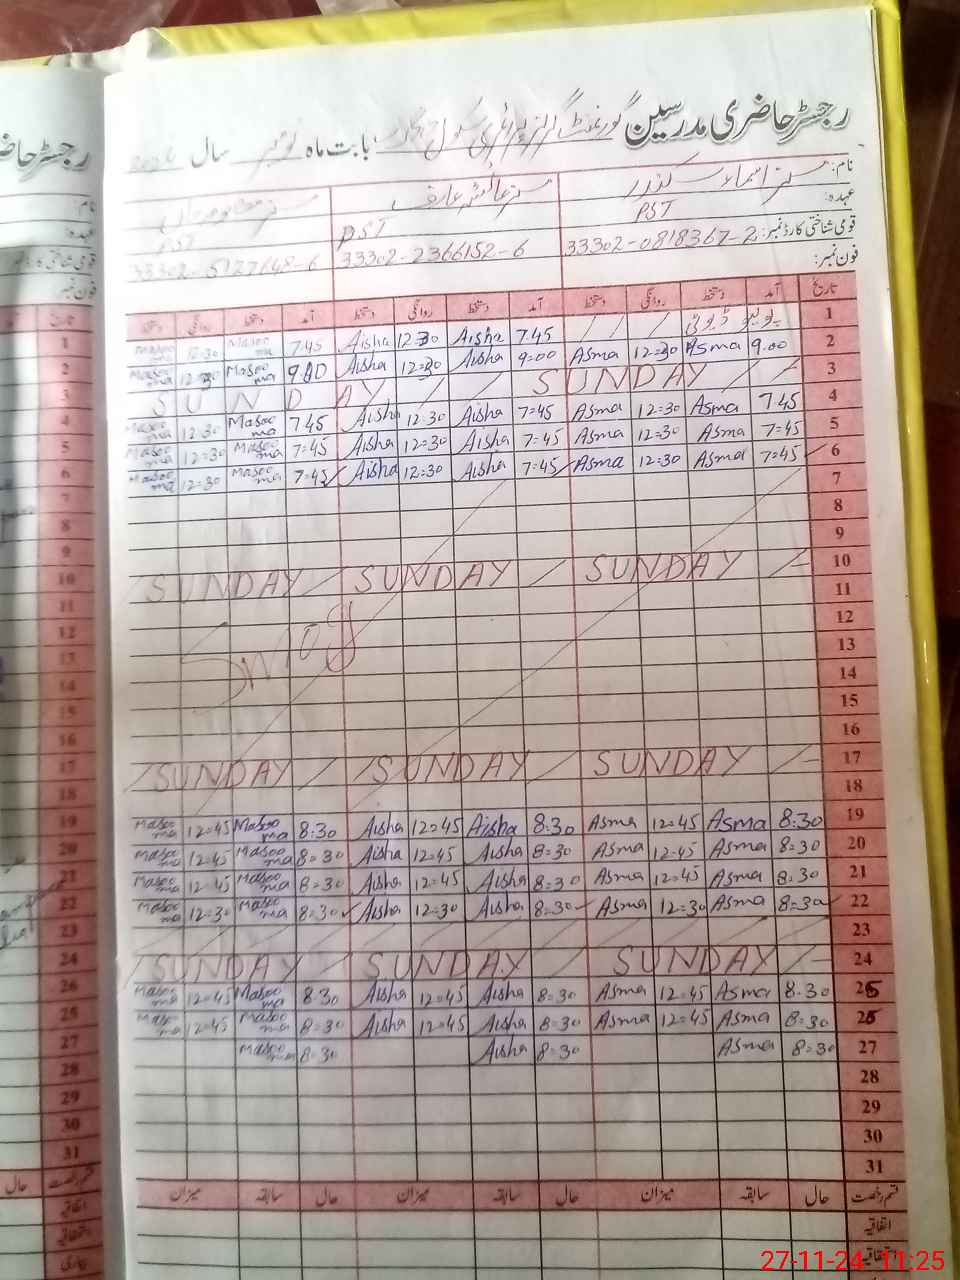 رجسٹر حاضری مدرسین گورنمنٹ گرلز پرائمری سکول بابت ماہ نومبر سال
نام: مسز اسماء سکندر مسز عائشہ عارف مسز
عہدہ: PST PST PST
قومی شناختی کارڈ نمبر: 33302-0818367-2 33302-2366152-6 33302-5127148-6
فون نمبر:
تاریخ آمد دستخط روانگی دستخط آمد دستخط روانگی دستخط آمد دستخط روانگی دستخط
1 پولیو ڈیوٹی / / / 7.45 Aisha 12:30 Aisha 7.45 Masooma 12:30 Masooma
2 9.00 Asma 12:30 Asma 9:00 Aisha 12:30 Aisha 9.00 Masooma 12:30 Masooma
3 SUNDAY SUNDAY
4 7.45 Asma 12:30 Asma 7=45 Aisha 12:30 Aisha 7.45 Masooma 12:30 Masooma
5 7=45 Asma 12=30 Asma 7=45 Aisha 12=30 Aisha 7=45 Masooma 12=30 Masooma
6 7=45 Asma 12=30 Asma 7=45 Aisha 12=30 Aisha 7=45 Masooma 12=30 Masooma
7
8
9
10 SUNDAY SUNDAY SUNDAY
11
12
Smog
13
14
15
16
17 SUNDAY SUNDAY SUNDAY
18
19 8:30 Asma 12=45 Asma 8:30 Aisha 12=45 Aisha 8:30 Masooma 12=45 Masooma
20 8=30 Asma 12=45 Asma 8=30 Aisha 12=45 Aisha 8=30 Masooma 12=45 Masooma
21 8=30 Asma 12=45 Asma 8=30 Aisha 12=45 Aisha 8=30 Masooma 12=45 Masooma
22 8=30 Asma 12=30 Asma 8=30 Aisha 12=30 Aisha 8=30 Masooma 12=30 Masooma
23
24 SUNDAY SUNDAY SUNDAY
25 8.30 Asma 12=45 Asma 8=30 Aisha 12=45 Aisha 8.30 Masooma 12=45 Masooma
26 8=30 Asma 12=45 Asma 8=30 Aisha 12=45 Aisha 8=30 Masooma 12=45 Masooma
27 8=30 Asma 8=30 Aisha 8=30 Masooma
28
29
30
31
قسم رخصت حال سابقہ میزان حال سابقہ میزان حال سابقہ میزان
اتفاقیہ
استحقاقیہ
27-11-24 11:25